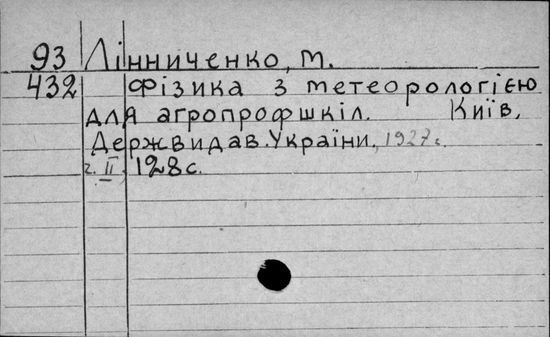 93 Лінниченко, М.
432 Фізика з метеорологією
для агропрофшкіл. Київ,
Держвидав.України, 1927 г.
г. II, 128 с.